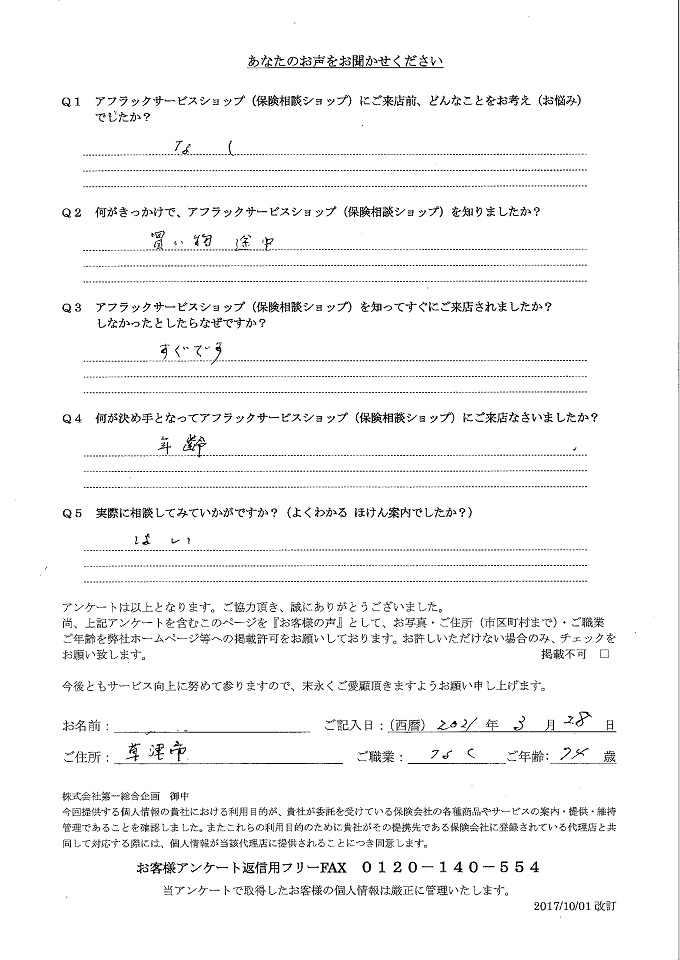 あなたのお声をお聞かせください
Q1 アフラックサービスショップ（保険相談ショップ）にご来店前、どんなことをお考え（お悩み）
でしたか？
なし
Q2 何がきっかけで、アフラックサービスショップ（保険相談ショップ）を知りましたか？
買い物 途中
Q3 アフラックサービスショップ（保険相談ショップ）を知ってすぐにご来店されましたか？
しなかったとしたらなぜですか？
すぐです
Q4 何が決め手となってアフラックサービスショップ（保険相談ショップ）にご来店なさいましたか？
年齢
Q5 実際に相談してみていかがですか？（よくわかる ほけん案内でしたか？）
はい
アンケートは以上となります。ご協力頂き、誠にありがとうございました。
尚、上記アンケートを含むこのページを『お客様の声』として、お写真・ご住所（市区町村まで）・ご職業
ご年齢を弊社ホームページ等への掲載許可をお願いしております。お許しいただけない場合のみ、チェックを
お願い致します。 掲載不可 □
今後ともサービス向上に努めて参りますので、末永くご愛顧頂きますようお願い申し上げます。
お名前： ご記入日：（西暦）2021 年 3 月 28 日
ご住所： 草津市 ご職業： なし ご年齢： 74 歳
株式会社第一総合企画 御中
今回提供する個人情報の貴社における利用目的が、貴社が委託を受けている保険会社の各種商品やサービスの案内・提供・維持
管理であることを確認しました。またこれらの利用目的のために貴社がその提携先である保険会社に登録されている代理店と共
同して対応する際には、個人情報が当該代理店に提供されることにつき同意します。
お客様アンケート返信用フリーFAX 0120－140－554
当アンケートで取得したお客様の個人情報は厳正に管理いたします。
2017/10/01 改訂